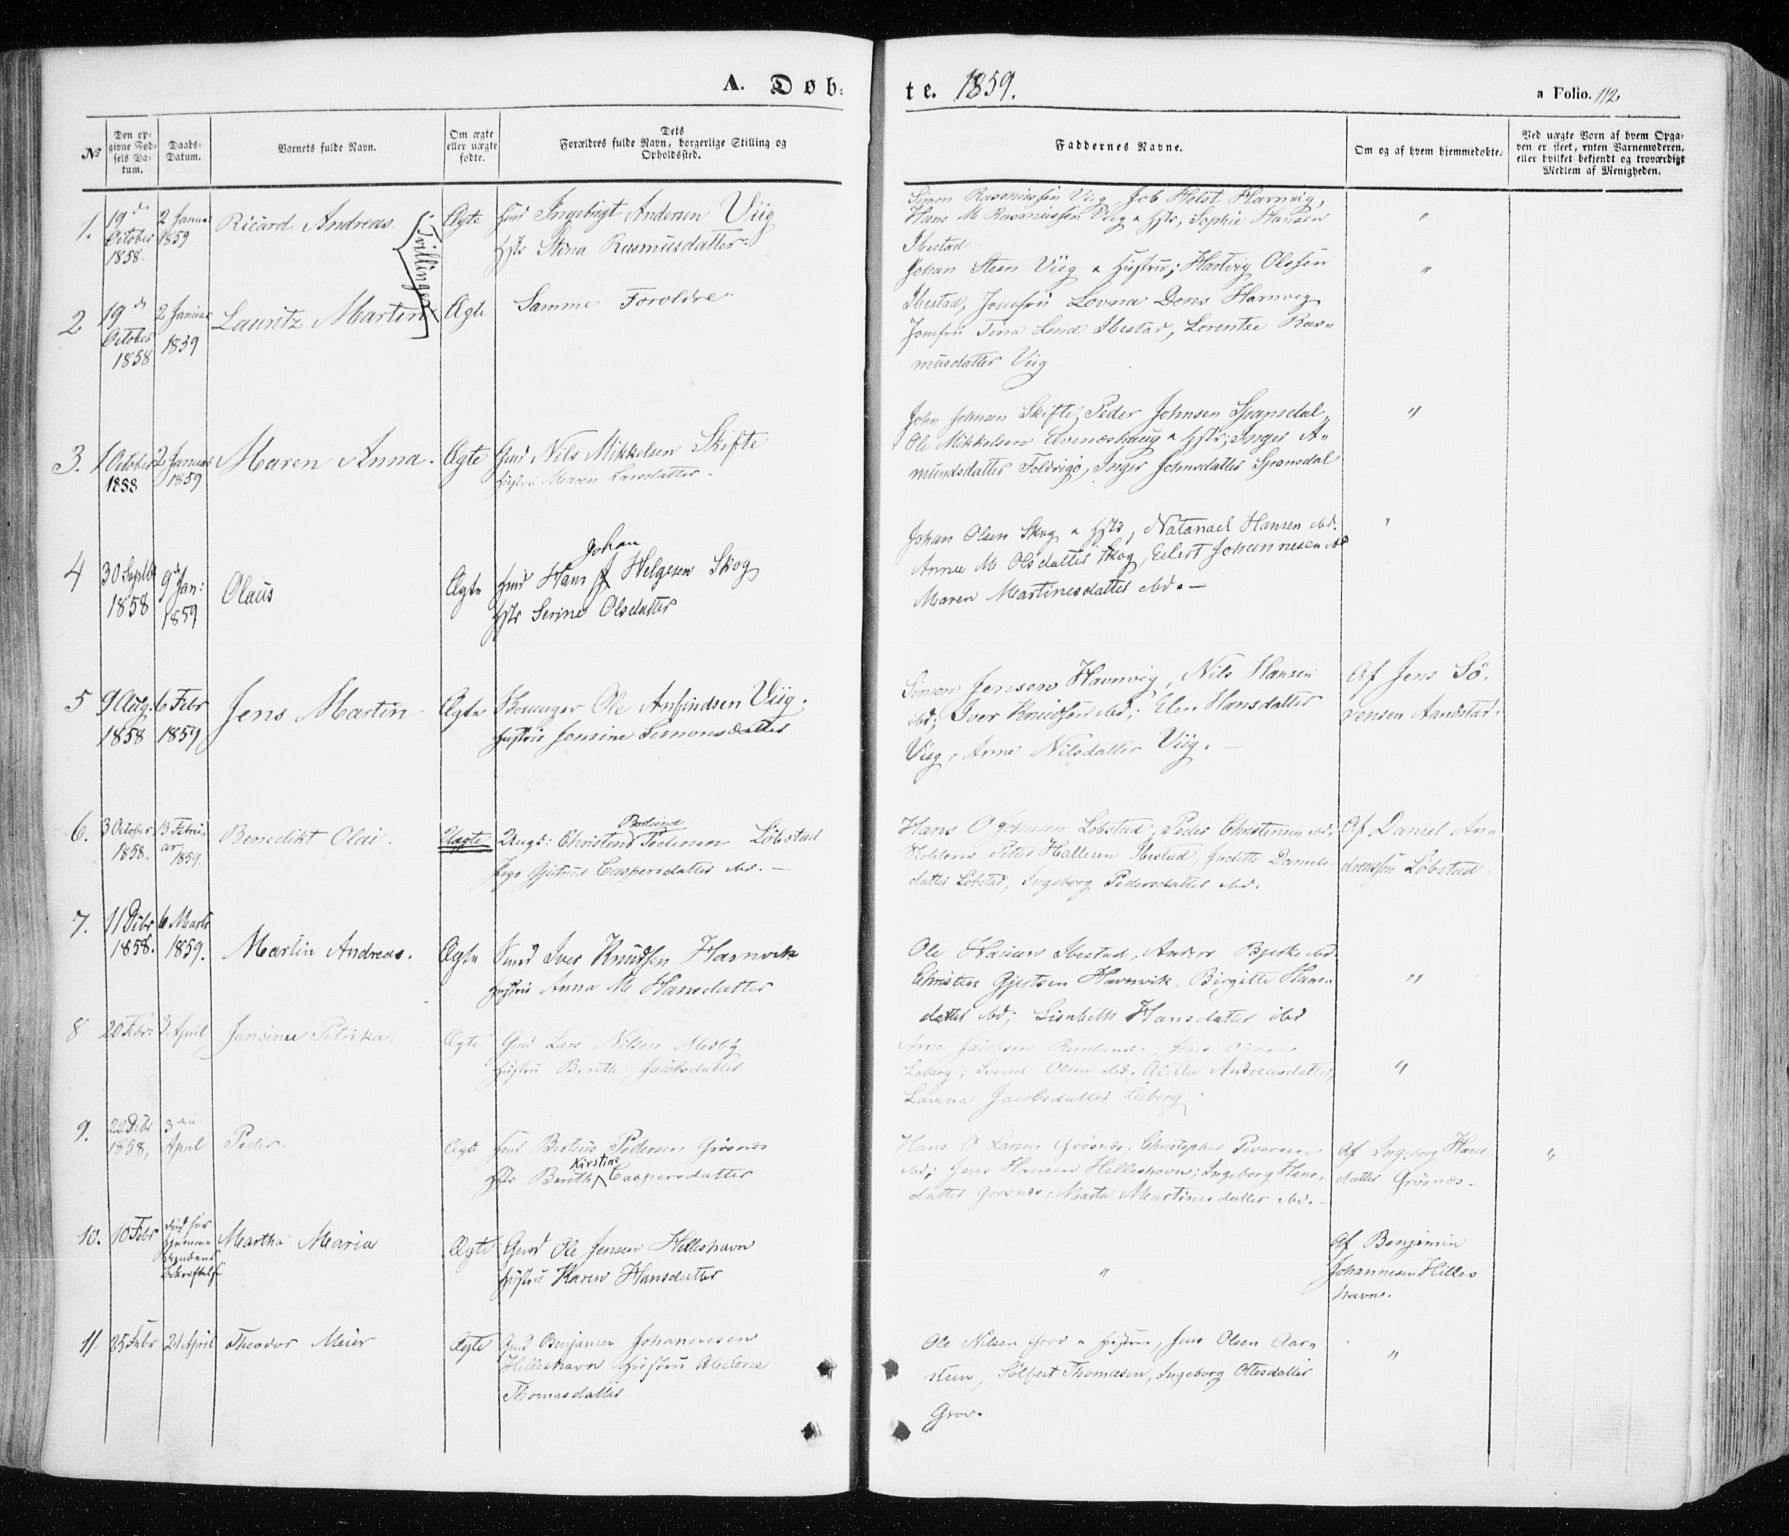 A. Døb-
te. 1859.
a Folio. 112
No
Den opgivne Fødsels Datum.
Daabs-Datum.
Barnets fulde Navn.
Om ægte eller uægte fødte.
Dets Forældres fulde Navn, borgerlige Stilling og Opholdssted.
Faddernes Navne.
Om og af hvem hjemmedøbte.
Ved uægte Børn af hvem Opgaven er skeet, enten Barnemoderen, eller hvilket bekjendt og troværdigt Medlem af Menigheden.
1. 19de October 1858. 2 Januar 1859 Ricard Andreas. Tvillinger Ægte Gmd Ingebrigt Andersen Viig
Hstr Stina Rasmusdatter.
Simon Rasmussen Viig, Job Holst Havnvig,
Hans M Rasmussen Viig & Hstr, Sophie Hansen
Ibestad
"
2 19de October 1858 2 Januar 1859 Lauritz Martin Ægte Samme Foreldre
Johan Steen Viig & Hustru; Hartvig Olsen
Ibestad, Jomfru Lovna Dons Havnvig
Jomfru Tina Lund Ibestad, Lorentse Ras-
musdatter Viig
"
3. 1 October 1858 2 Januar 1859 Maren Anna. Ægte Gmd Nils Mikkelsen Skifte
Hustru Maren Larsdatter.
John Johnsen Skifte, Peder Johnsen Spansdal,
Ole Mikkelsen & Hstr; Inger A-
mundsdatter, Inger Johnsdatter Spansdal
"
4 30 Septbr 1858 9de Jan: 1859 Olaus Ægte Gmd Hans Johan Helgesen Skog
Hstr Serine Olsdatter
Johan Olsen Skog & Hstr, Natanael Hansen ibd.
Anne M Olsdatter Skog, Eilert Johannesen ibd
Maren Martinesdatter ibd. —
"
5 9 Aug: 1858 6 Febr 1859 Jens Martin Ægte Ole Anfindsen Viig.
Hustru Jensine Simonsdatter
Simon Jensen Havnvig, Nils Hansen
ibd; Iver Knudsen ibd; Elen Hansdatter
Viig, Anne Nilsdatter Viig. —
Af Jens Sø-
rensen Aandstad.
6. 3 October 1858. 13 Februar 1859. Benedikt Olai. Uægte Ungk: Christen Pedersen Løbstad
Pige Gjertrud Caspersdatter ibd. —
Hans O Johnsen Lobstad, Peder Christensen ibd,
Peter Hallesen Ibestad, Judithe Daniels-
datter Lobstad, Ingeborg Pedersdatter ibd.
Af Daniel An-
dreassen Løbstad.
7. 11 Debr 1858. 6 Marts 1859. Martin Andreas. Ægte Gmd Iver Knudsen Havnvik
Hustru Anna M Hansdatter
Ole Hansen Ibestad, Anders Bjerke ibd
Christen Gjertsen Havnvik, Birgitte Hans-
datter ibd; Lisabeth Hansdatter ibd
"
8 20 Febr: 3 April Jensine Petrika. Ægte Gmd Lars Nilsen Medby
Hustru Berith Jacobsdatter
Arne Jacobsen, Jens Olsen
Loberg; Svend Olsen ibd, Andreasdatter,
Lavina Jacobsdatter Loberg
"
9. Debr 1858, 3die April Peder. Ægte Gmd Berteus Pedersen Grøsnes
Hstr Berith Kirstine Caspersdatter
Hans O Larsen Grøsnes; Christopher Iversen
ibd; Jens Hansen Helleshavn; Ingeborg Hans-
datter Grøsnes; Marta Martinesdatter ibd. —
Af Ingeborg Hans-
datter Grøsnes.
"
10. 10 Febr død før Hjemmedaabens Bekræftelse Martha Maria Ægte Gmd Ole Jensen Helleshavn
Hustru Karen Hansdatter
"
Af Benjamin
Johannesen Helles
havn.
11. 25 Febr 21 April Theodor Meier Ægte Gmd Benjamin Johannesen
Helleshavn Hustru Abelone
Thomasdatter
Ole Nilsen Grov & Hustru, Jens Olsen Aar-
steen, Solfert Thomasen, Ingeborg Ottesdatter
Grov.
"